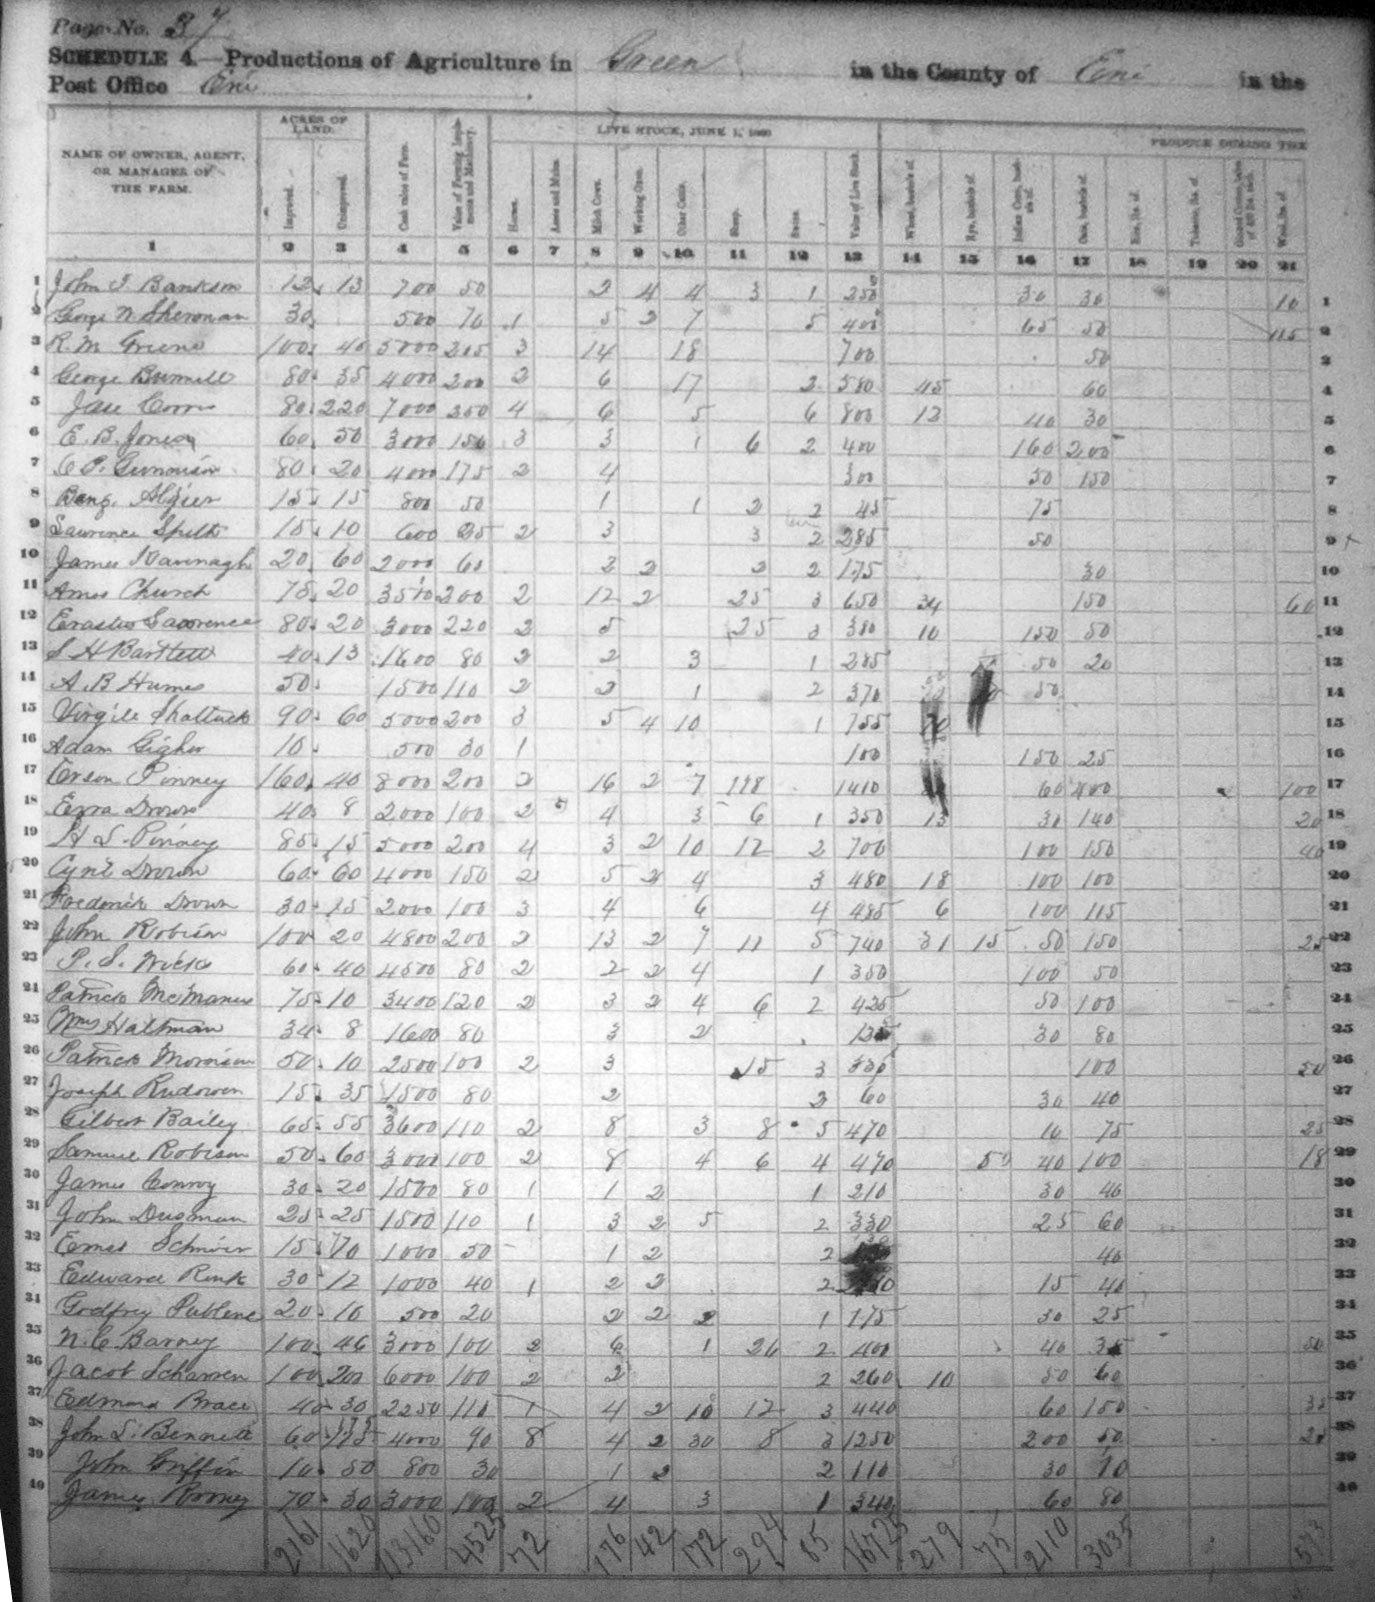 Page No. 37
SCHEDULE 4.—Productions of Agriculture in Green in the County of Erie in the
Post Office Erie
NAME OF OWNER, AGENT, OR MANAGER OF THE FARM. ACRES OF LAND. Improved. Unimproved. Cash value of Farm. Value of Farming Implements and Machinery. LIVE STOCK, JUNE 1, 1860 Horses. Asses and Mules. Milch Cows. Working Oxen. Other Cattle. Sheep. Swine. Value of Live Stock. PRODUCE DURING THE Wheat, bushels of. Rye, bushels of. Indian Corn, bushels of. Oats, bushels of. Rice, lbs. of. Tobacco, lbs. of. Ginned Cotton, bales of 400 lbs. each. Wool, lbs. of.
1 2 3 4 5 6 7 8 9 10 11 12 13 14 15 16 17 18 19 20 21
1 John Bankson 12 13 700 50 2 4 4 3 1 250 30 30 10 1
2 George W Sherman 30 500 70 1 5 2 7 5 400 65 50 115 2
3 R. M. Greene 100 40 5000 205 3 14 18 700 50 3
4 George 80 35 4000 200 2 6 17 2 580 45 60 4
5 80 220 7000 350 4 6 5 6 800 13 40 30 5
6 E. B. Jones 60 50 3000 150 3 3 1 6 2 400 160 200 6
7 80 20 4000 175 2 4 300 50 150 7
8 Benj. Algier 15 15 800 50 1 1 2 2 45 75 8
9 Lawrence 15 10 600 35 2 3 3 2 285 50 9
10 James Kavenagh 20 60 2000 60 3 2 2 2 175 30 10
11 Amos Church 75 20 3500 200 2 12 2 25 3 650 34 150 60 11
12 Erastus Lawrence 80 20 3000 220 3 5 25 3 380 10 150 50 12
13 S H Bartlett 40 13 1600 80 2 2 3 1 285 50 20 13
14 A. B Humes 50 1500 110 2 2 1 2 370 50 14
15 Virgile Shattuck 90 60 5000 200 3 5 4 10 1 755 15
16 Adam 10 500 30 1 100 150 25 16
17 Orson Pinney 160 40 8000 200 2 16 2 7 118 1410 60 400 100 17
18 Ezra Drown 40 8 2000 100 2 4 3 6 1 350 13 30 140 20 18
19 H S. Pinney 85 15 5000 200 4 3 2 10 12 2 700 100 150 40 19
20 Cyril Drown 60 60 4000 150 2 5 2 4 3 480 18 100 100 20
21 Frederick Drown 30 15 2000 100 3 4 6 4 485 6 100 115 21
22 John Robison 100 20 4800 200 2 13 2 7 11 5 740 31 15 50 150 25 22
23 P. S. 60 40 4500 80 2 2 2 4 1 350 100 50 23
24 Patrick McManus 75 10 3400 120 2 3 2 4 6 2 435 50 100 24
25 Wm Haltman 34 8 1600 80 3 2 30 80 25
26 Patrick Morrison 50 10 2500 100 2 3 15 3 335 100 50 26
27 Joseph 15 35 1500 80 2 2 60 30 40 27
28 Gilbert Bailey 65 55 3600 110 2 8 3 8 5 470 10 75 25 28
29 Samuel Robison 50 60 3000 100 2 8 4 6 4 470 50 40 100 18 29
30 James Conroy 30 20 1500 80 1 1 2 1 210 30 40 30
31 John Dusman 25 25 1500 110 1 3 2 5 2 330 25 60 31
32 15 70 1000 50 1 2 2 40 32
33 Edward Rink 30 12 1000 40 1 2 2 2 15 40 33
34 Godfrey 20 10 500 20 2 2 2 1 175 30 25 34
35 N. C. Barney 100 46 3000 100 2 6 1 26 2 400 40 35 50 35
36 Jacob 100 200 6000 100 2 2 2 260 10 50 60 36
37 Edmund Brace 40 30 2250 110 1 4 2 10 12 3 440 60 150 37
38 John S. Bennett 60 175 4000 90 8 4 2 30 8 3 1250 200 50 38
39 John Griffin 10 50 800 30 1 2 2 110 30 10 39
40 James Rooney 70 30 3000 100 2 4 3 1 340 60 80 40
2161 1620 113160 4525 72 176 42 172 294 85 16725 279 75 2110 3035 573